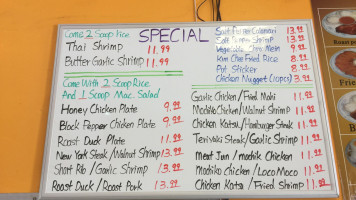 SPECIAL
Come 2 Scoop Rice
Thai Shrimp 11.99
Butter Garlic Shrimp 11.99
Come With 2 Scoop Rice
And 1 Scoop Mac. Salad
Honey Chicken Plate 9.99
Black Pepper Chicken Plate 9.99
Roast Duck Plate 11.99
New York Steak/Walnut Shrimp 13.99
Short Rib/Garlic Shrimp 13.99
Roast Duck/Roast Pork 13.99
Calamari 13.99
Shrimp 13.99
Vegetable Chow Mein 9.99
Kim Chee Fried Rice 8.99
Pot Sticker 8.99
Chicken Nugget (10pcs) 3.99
Garlic Chicken/Fried Mahi 11.99
Mochiko Chicken/Walnut Shrimp 11.99
Chicken Katsu/Hamburger Steak 11.99
Teriyaki Steak/Garlic Shrimp 11.99
Meat Jun/Mochiko Chicken 11.99
Mochiko Chicken/Loco Moco 11.99
Chicken Katsu/Fried Shrimp 11.99